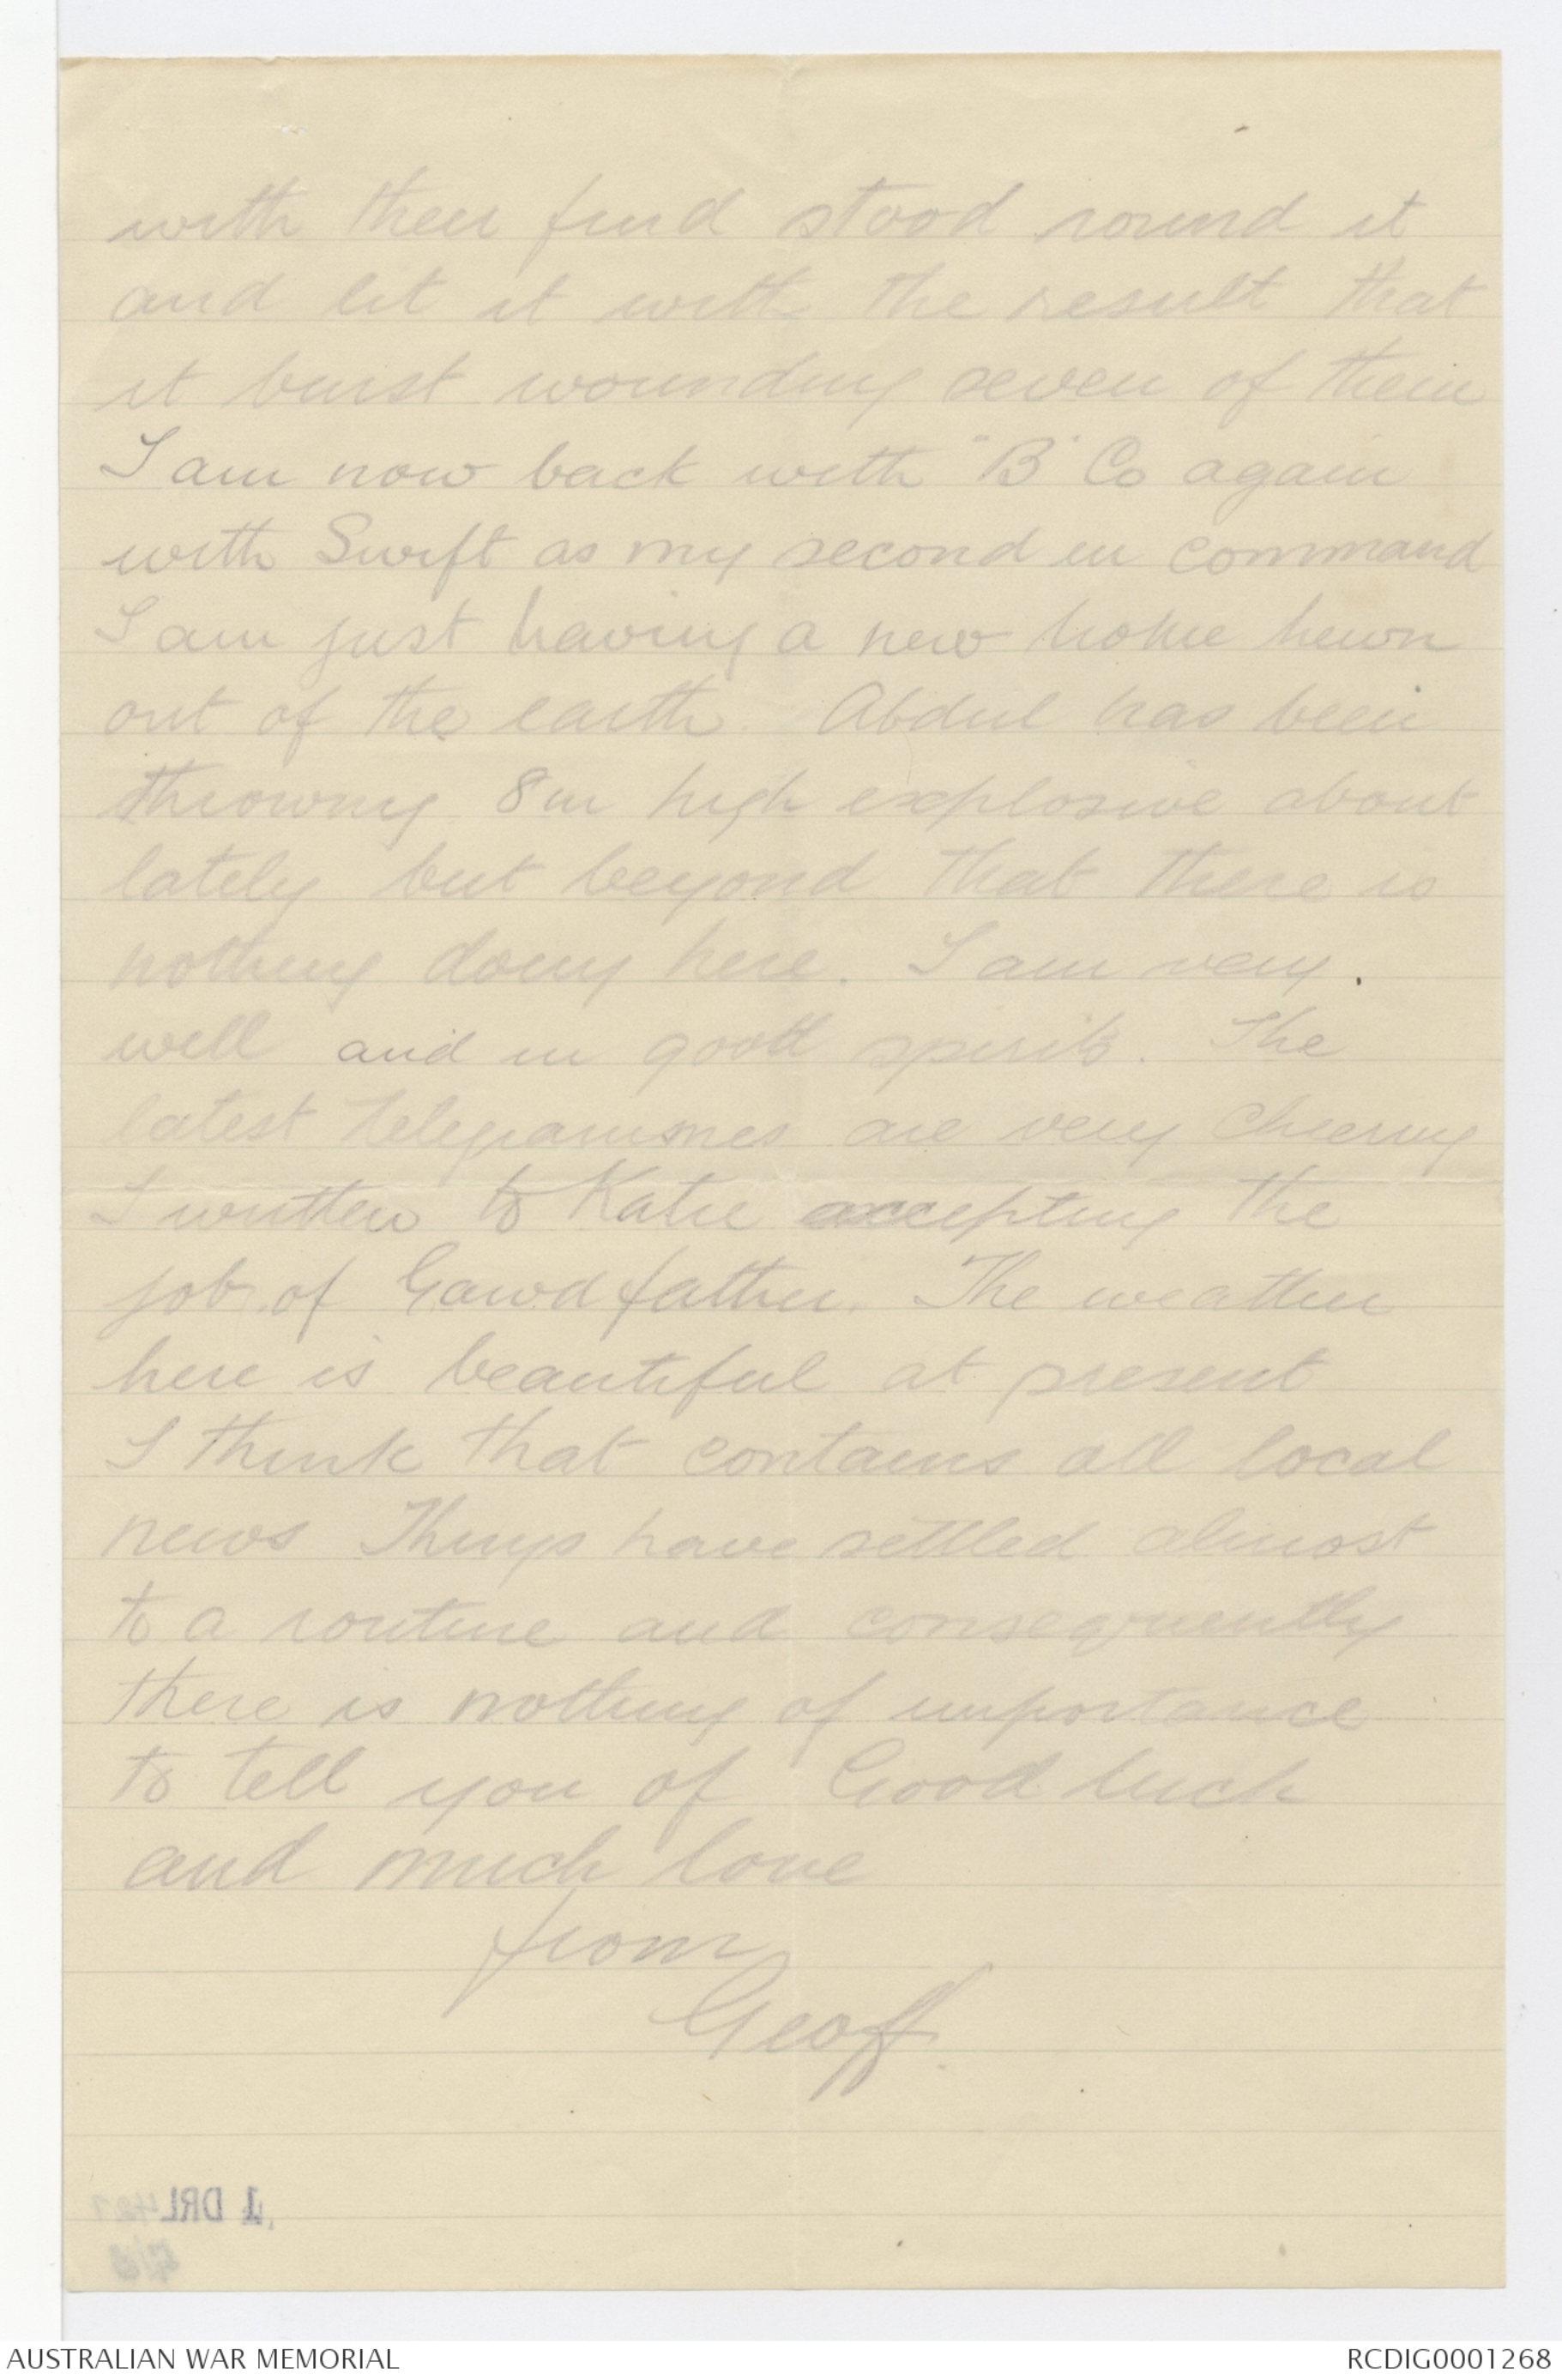 with their find stood round it
and lit it with the result that
it burst wounding seven of them
I am now back with "B" Co again
with Swift as my second in command
I am just having a new home hewn
out of the earth. Abdul has been
throwing 8in high explosive about
lately but beyond that there is
nothing doing here. I am very
well and in good spirits. The
latest telegrammes are very cheering
I written to Katie accepting the
job of Gawdfather. The weather
here is beautiful at present
I think that contains all local
news Things have settled almost
to a routine and consequently
there is nothing of importance
to tell you of Good luck
and much love
from
Geoff.
1 DRL
AUSTRALIAN WAR MEMORIAL
RCDIG0001268